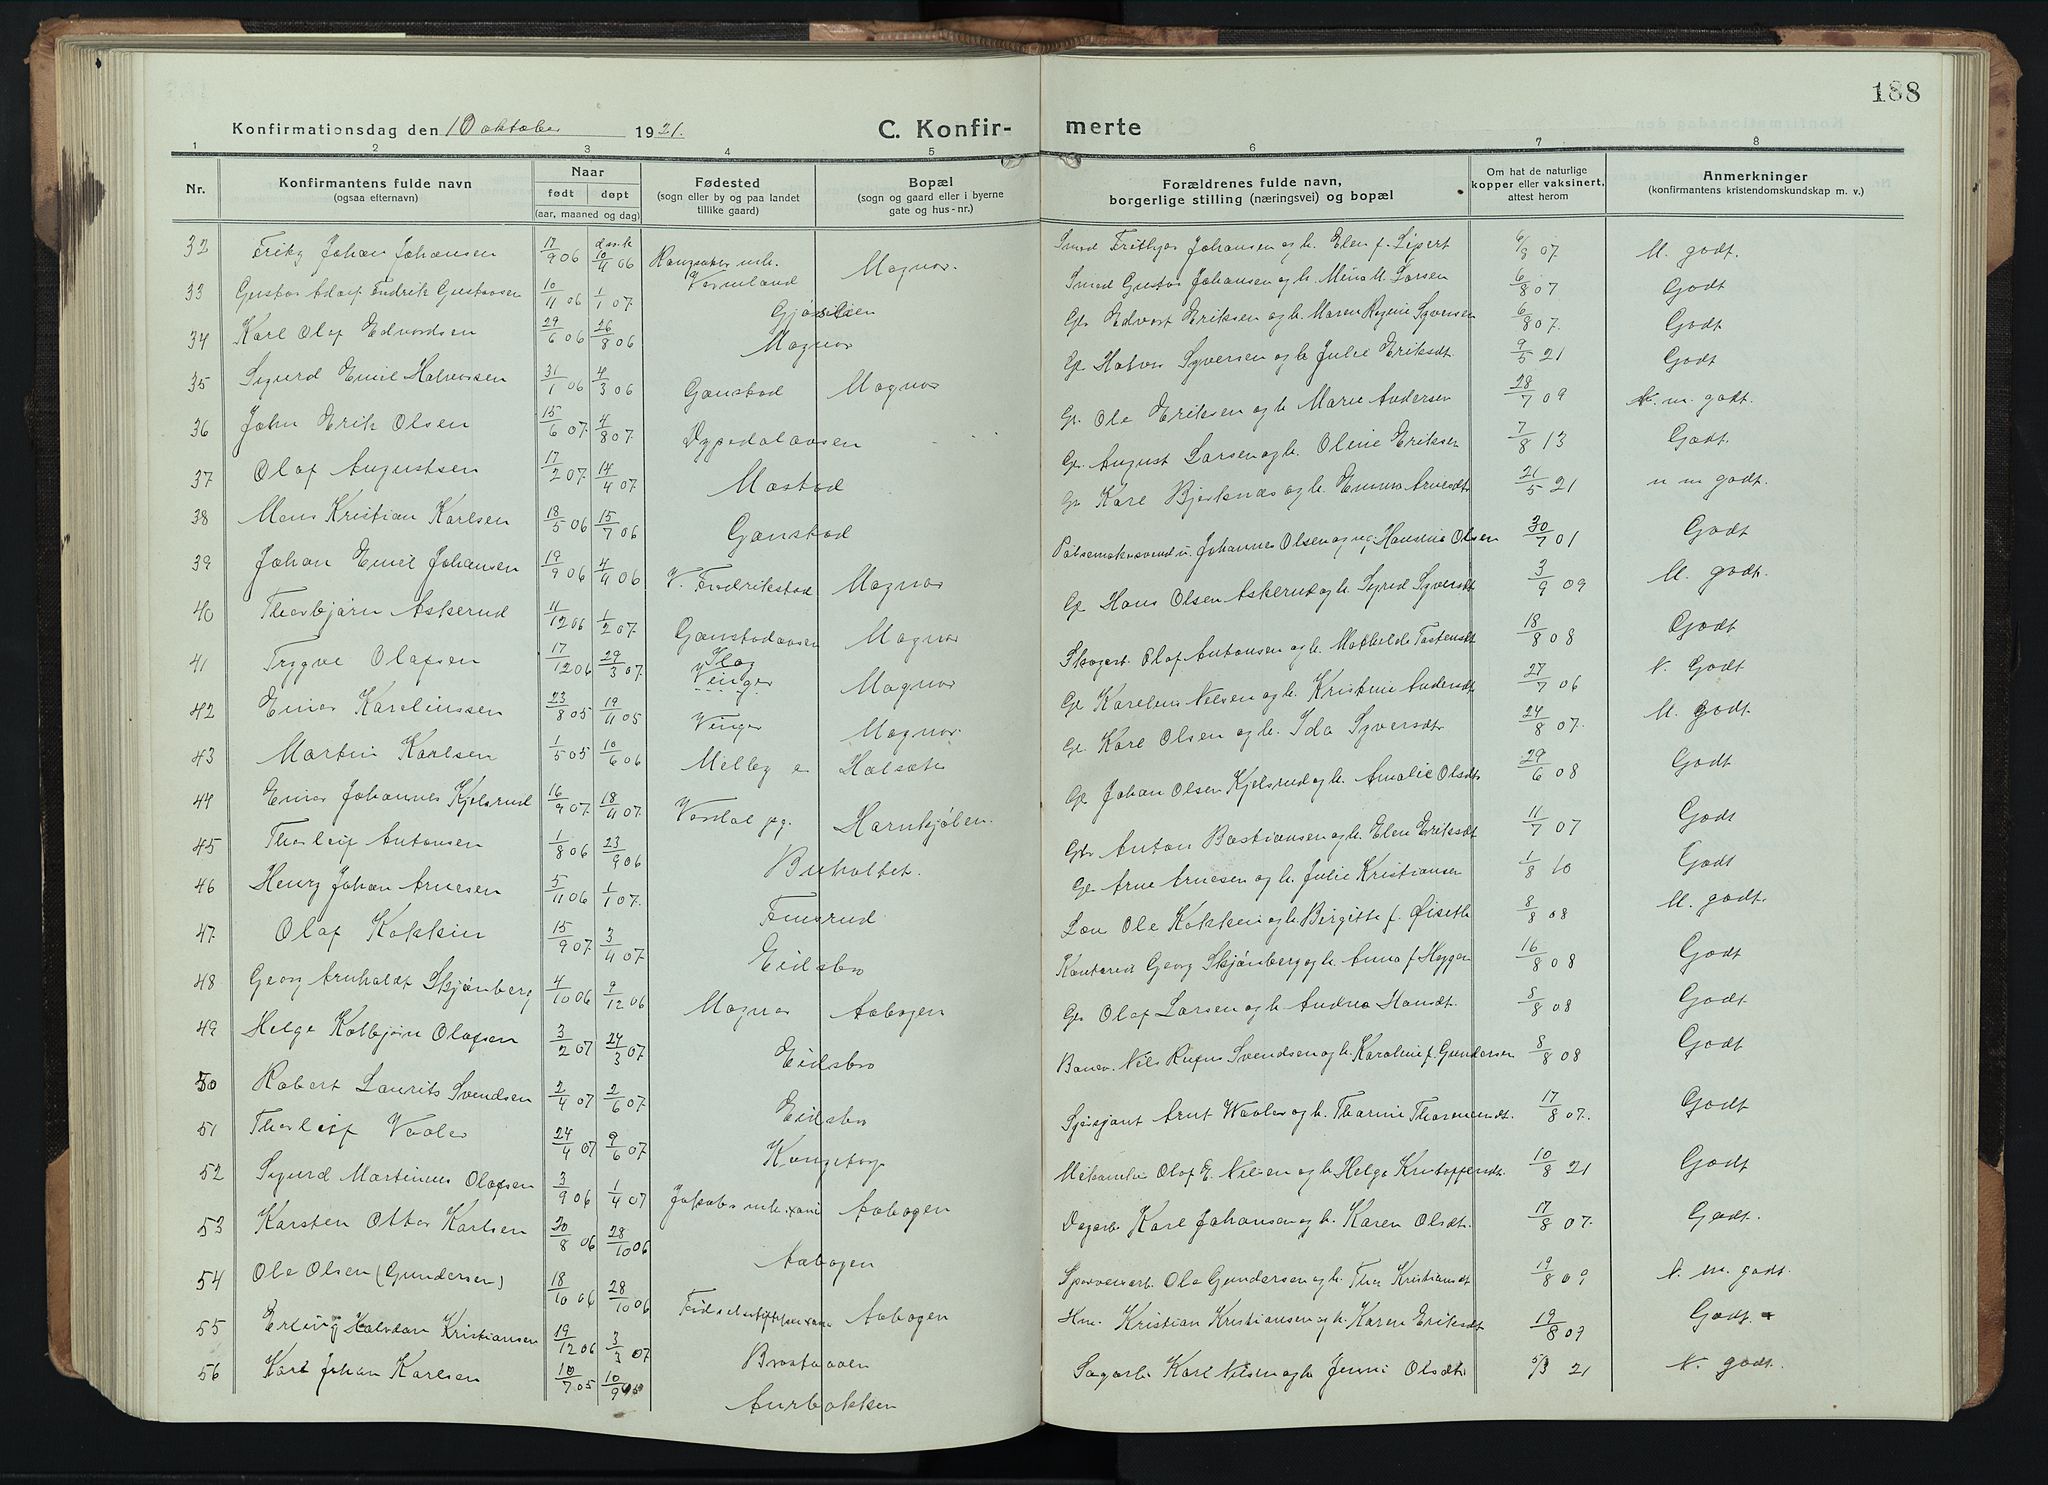 188
Konfirmationsdag den 10 oktober 1921.
C. Konfirmerte
1 2 3 4 5 6 7 8
Nr.
Konfirmantens fulde navn
(ogsaa efternavn)
Naar
født døpt
(aar, maaned og dag)
Fødested
(sogn eller by og paa landet
tillike gaard)
Bopæl
(sogn og gaard eller i byerne
gate og hus-nr.)
Forældrenes fulde navn,
borgerlige stilling (næringsvei) og bopæl
Om hat de naturlige
kopper eller vaksinert,
attest herom
Anmerkninger
(konfirmantens kristendomskundskap m. v.)
32 Johan Johansen 17/9 06 10/4 06 Magnor. Smed Johansen og h. Elen f. Lipert 6/8 07 M. godt.
33 Gustav Adolf Fredrik Gustavsen 10/11 06 1/1 07. Vermland Smed Gustav Johansen og h. Mina M. Larsen 6/8 07 Godt
34 Karl Olaf Edvardsen 29/6 06 26/8 06 Magnor Edvart Eriksen og h. Maren Regine Syversen 6/8 07. Godt
35 Sigurd Emil Halvorsen 31/1 06 4/3 06 Gaustad Magnor Halvor Syversen og h. Julie Eriksdt. 9/5 21 Godt
36 John Erik Olsen 15/6 07. 4/8 07. Dypedalaasen Ole Eriksen og h. Marie Andersen 28/7 09 N. m. godt.
37 Olaf Augustsen 17/2 07. 14/4 07. Mastad August Larsen og h. Oline Eriksen 7/8 13 Godt.
38 Mons Kristian Karlsen 18/5 06 15/7 06 Gaustad Karl Bjerknes og h. Emma Arnesdt. 21/5 21 n m godt.
39 Johan Emil Johansen 19/9 06 4/11 06 V. Fredrikstad Magnor Pølsemakersvend u. Johannes Olsen og Hansine Olsen 30/7 01 Godt
40 Thorbjørn Askerud 11/12 06 1/2 07. Gaustadaasen Magnor Hans Olsen Askerud og h. Sigrid Syversdt. 3/9 09 M. godt.
41 Trygve Olafsen 17/12 06 29/3 07. Vinger Magnor Skogarb. Olaf Antonsen og h. Mathilde Tostensdt. 18/8 08 Godt
42 Einar Karelinssen 23/8 05 19/11 05 Vinger Magnor. Karelius Nilsen og h. Kristine Andersdt. 27/7 06 N. Godt
43 Martin Karlsen 1/5 05 10/6 06 Melleby Karl Olsen og h. Ida Syversdt. 24/8 07. M. godt.
44 Einar Johannes Kjelsrud 16/9 07. 18/11 07. Harnkjølen. Johan Olsen Kjelsrud og h. Amalie Olsdt. 29/6 08 Godt
45 Thorleif Antonsen 1/8 06 23/9 06 Buholtet. Anton Bastiansen og h. Elen Eriksdt 11/7 07 Godt
46 Henry Johan Arnesen 5/11 06 1/1 07. Finsrud Arne Arnesen og h. Julie Kristiansen 1/8 10 Godt
47 Olaf Kokkin 15/9 07. 3/11 07. Eidsbro Ole Kokken og h. Birgitte f. Øiseth 8/8 08 M. godt.
48 Georg Arnholdt Skjønberg 4/10 06 9/12 06 Magnor Aabogen Georg Skjønberg og h. Anna f. Heggen 16/8 08 Godt
49 Helge Kolbjørn Olafsen 3/2 07 24/3 07. Eidsbro Olaf Larsen og h. Andrea Hansdt. 8/8 08 Godt
50 Robert Laurits Svendsen 2/4 07 2/6 07. Eidsbro Banev. Nils Rufus Svendsen og h. Karoline f. Gundersen 8/8 08 Godt
51 Thorleif Vaaler 24/4 07 9/6 07. Sersjant Arnt Vaaler og h. Tharine 17/8 07. Godt
52 Sigurd Martinius Olafsen 3/9 06 1/4 07 Aabogen Olaf E. Nilsen og h. Helga Kristoffersdt. 10/8 21 Godt
53 Karsten Otto Karlsen 20/8 06 28/10 06 Aabogen Dagarb. Karl Johansen og h. Karen Olsdt. 17/8 07. Godt.
54 Ole Olsen (Gundersen) 18/10 06 28/10 06 Aabogen Ole Gundersen og h. Thea Kristiansdt. 19/8 09 N. m. godt.
55 Erling Halvdan Kristiansen 19/12 06 3/3 07 Kristian Kristiansen og h. Karen Eriksdt 19/8 09 Godt.
56 Karl Johan Karlsen 10/7 05 10/9 Aurbakken Sagarb. Karl Nilsen og h. Jenni Olsdt. 5/3 21 N. godt.